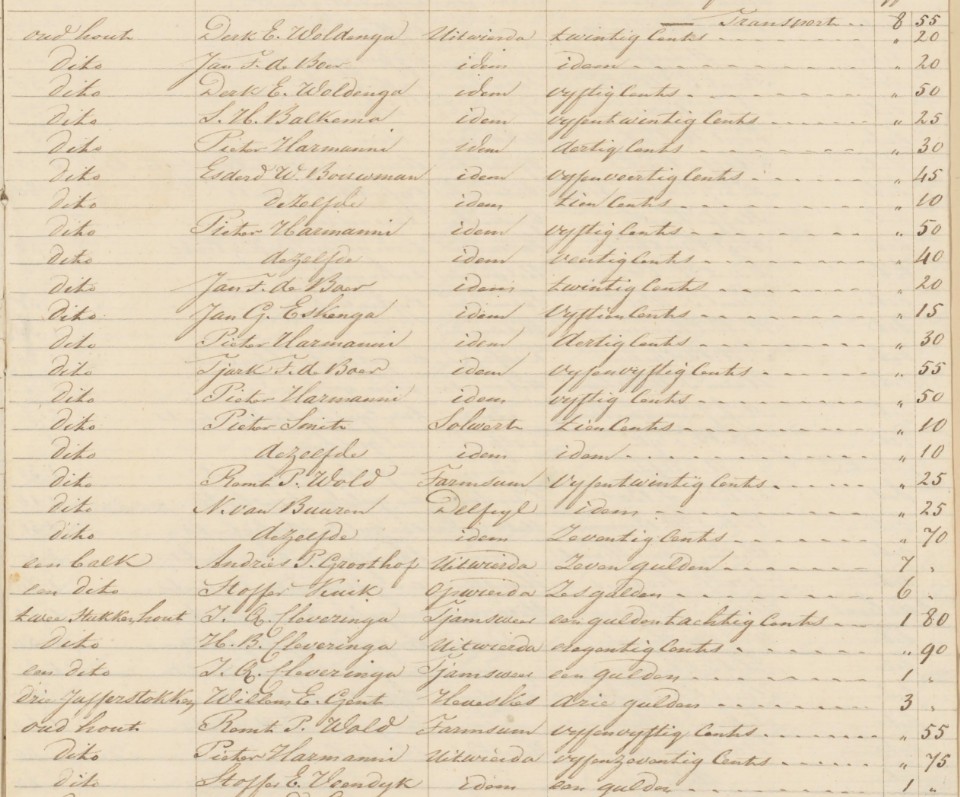 Transport 8 55
oud hout Derk E. Woldenga Uitwierda twintig Cents " 20
dito Jan F. de Boer idem idem " 20
dito Derk E. Woldenga idem vyftig Cents " 50
dito S. H. Balkema idem vyfentwintig Cents " 25
dito Pieter Harmanni idem dertig Cents " 30
dito Esderd W. Bouwman idem vyfenveertig Cents " 45
dito dezelfde idem tien Cents " 10
dito Pieter Harmanni idem vyftig Cents " 50
dito dezelfde idem veertig Cents " 40
dito Jan F. de Boer idem twintig Cents " 20
dito Jan G. Eskenga idem Vyftien Cents " 15
dito Pieter Harmanni idem dertig Cents " 30
dito Tjark F. de Boer idem vyfenvyftig Cents " 55
dito Pieter Harmanni idem vyftig Cents " 50
dito Pieter Smith Solwert tien Cents " 10
dito dezelfde idem idem " 10
dito Remt P. Wold Farmsum Vyfentwintig Cents " 25
dito N. van Buuren Delfzyl idem " 25
dito dezelfde idem Zeventig Cents " 70
een balk Andries P. Groothof Uitwierda Zeven gulden 7 "
een dito Stoffer Kuik Opwierda Zes gulden 6 "
twee stukken hout J. A. Cleveringa Tjamsweer een gulden tachtig Cents 1 80
dito H. B. Cleveringa Uitwierda negentig Cents " 90
een dito J. A. Cleveringa Tjamsweer een gulden 1 "
drie Jufferstokken Willem E. Gent Heveskes drie gulden 3 "
oud hout Remt P. Wold Farmsum vyfenvyftig Cents " 55
dito Pieter Harmanni Uitwierda vyfenzeventig Cents " 75
dito Stoffer E. Veendyk idem een gulden 1 "